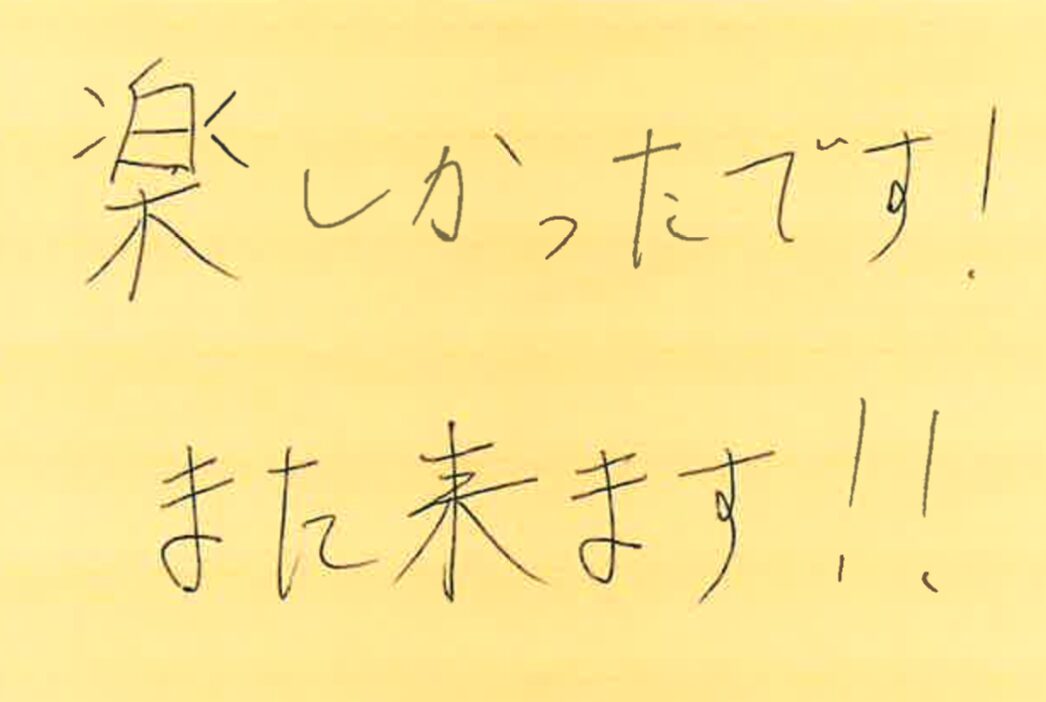 楽しかったです!
また来ます!!